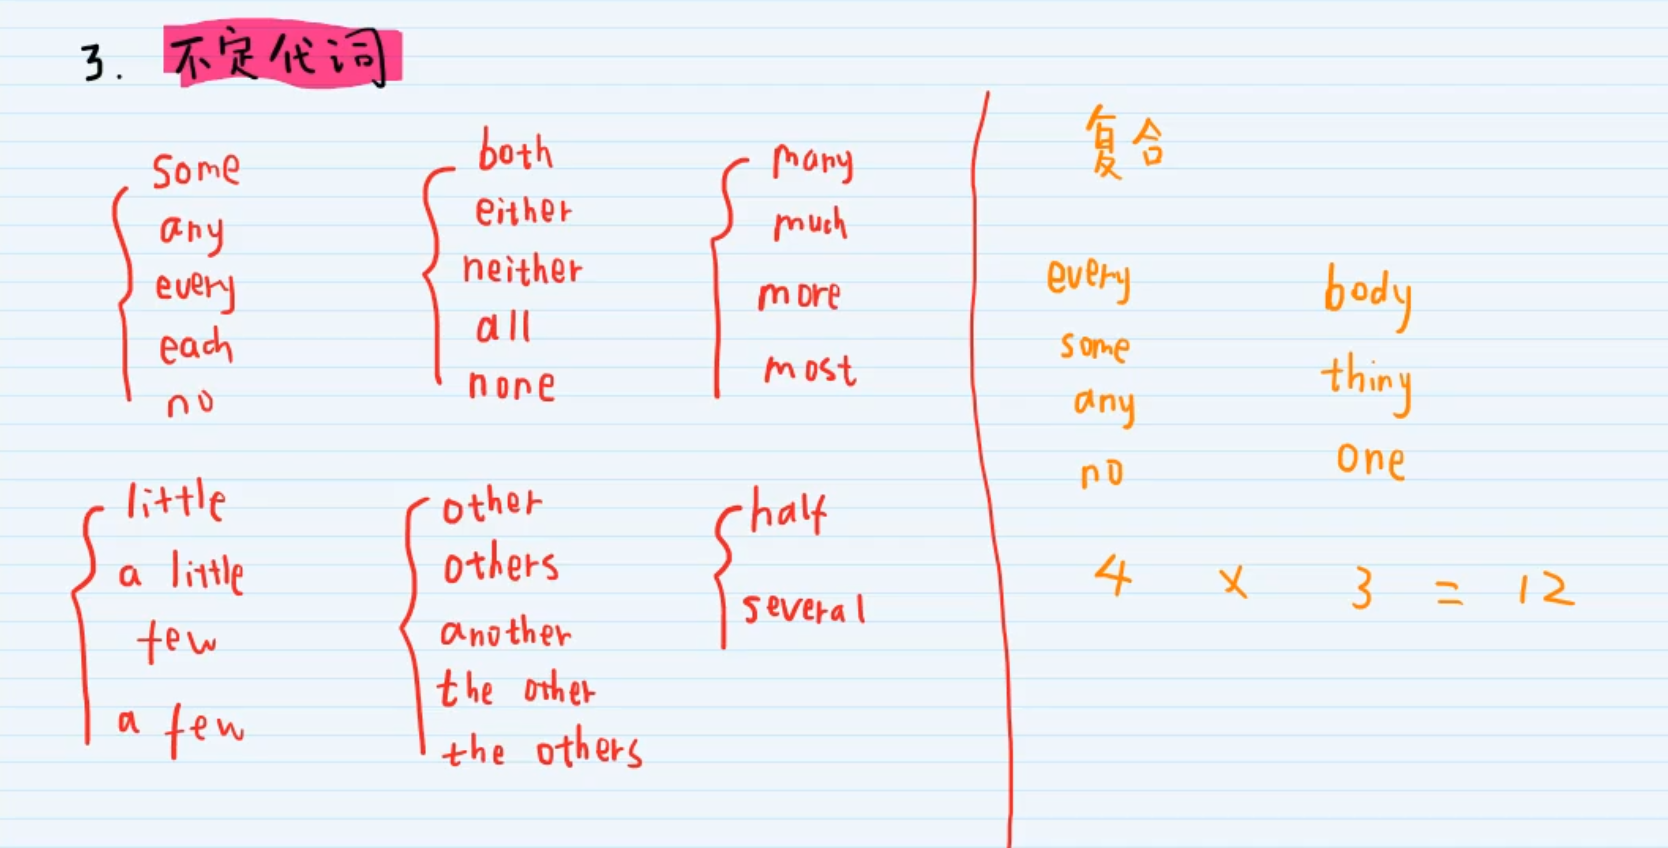 3. 不定代词
some
any
every
each
no
both
either
neither
all
none
many
much
more
most
little
a little
few
a few
other
others
another
the other
the others
half
several
复合
every
some
any
no
body
thing
one
4 × 3 = 12